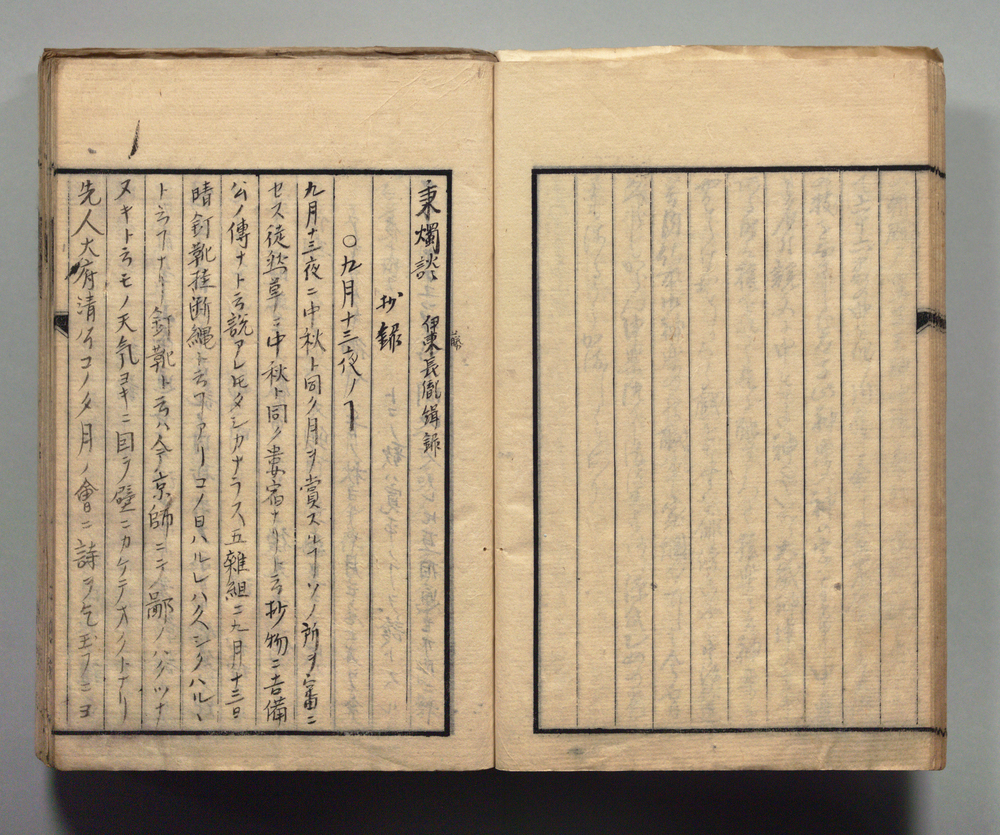 秉燭談 伊東長胤緝録
藤
抄録
〇九月十三夜ノヿ
九月十三夜ニ中秋ト同ク月ヲ賞スルヿソノ所ヲ審ニ
セス徒然草ニ中秋ト同ク婁宿ナリト云抄物ニ吉備
公ノ傳ナト云説アレ𪜈タシカナラス五雜組ニ九月十三日
晴釘靴挂断繩ト云フアリコノ日ハルレハ久シクハルヽ
ト云フナリ釘靴ト云ハ今京師ニテ鄙ノハクツナ
ヌキト云モノ天気ヨキニ因ラ壁ニカケテオクトナリ
先人大府清 コノタ月ノ會ニ詩ヲ乞玉フニヨ